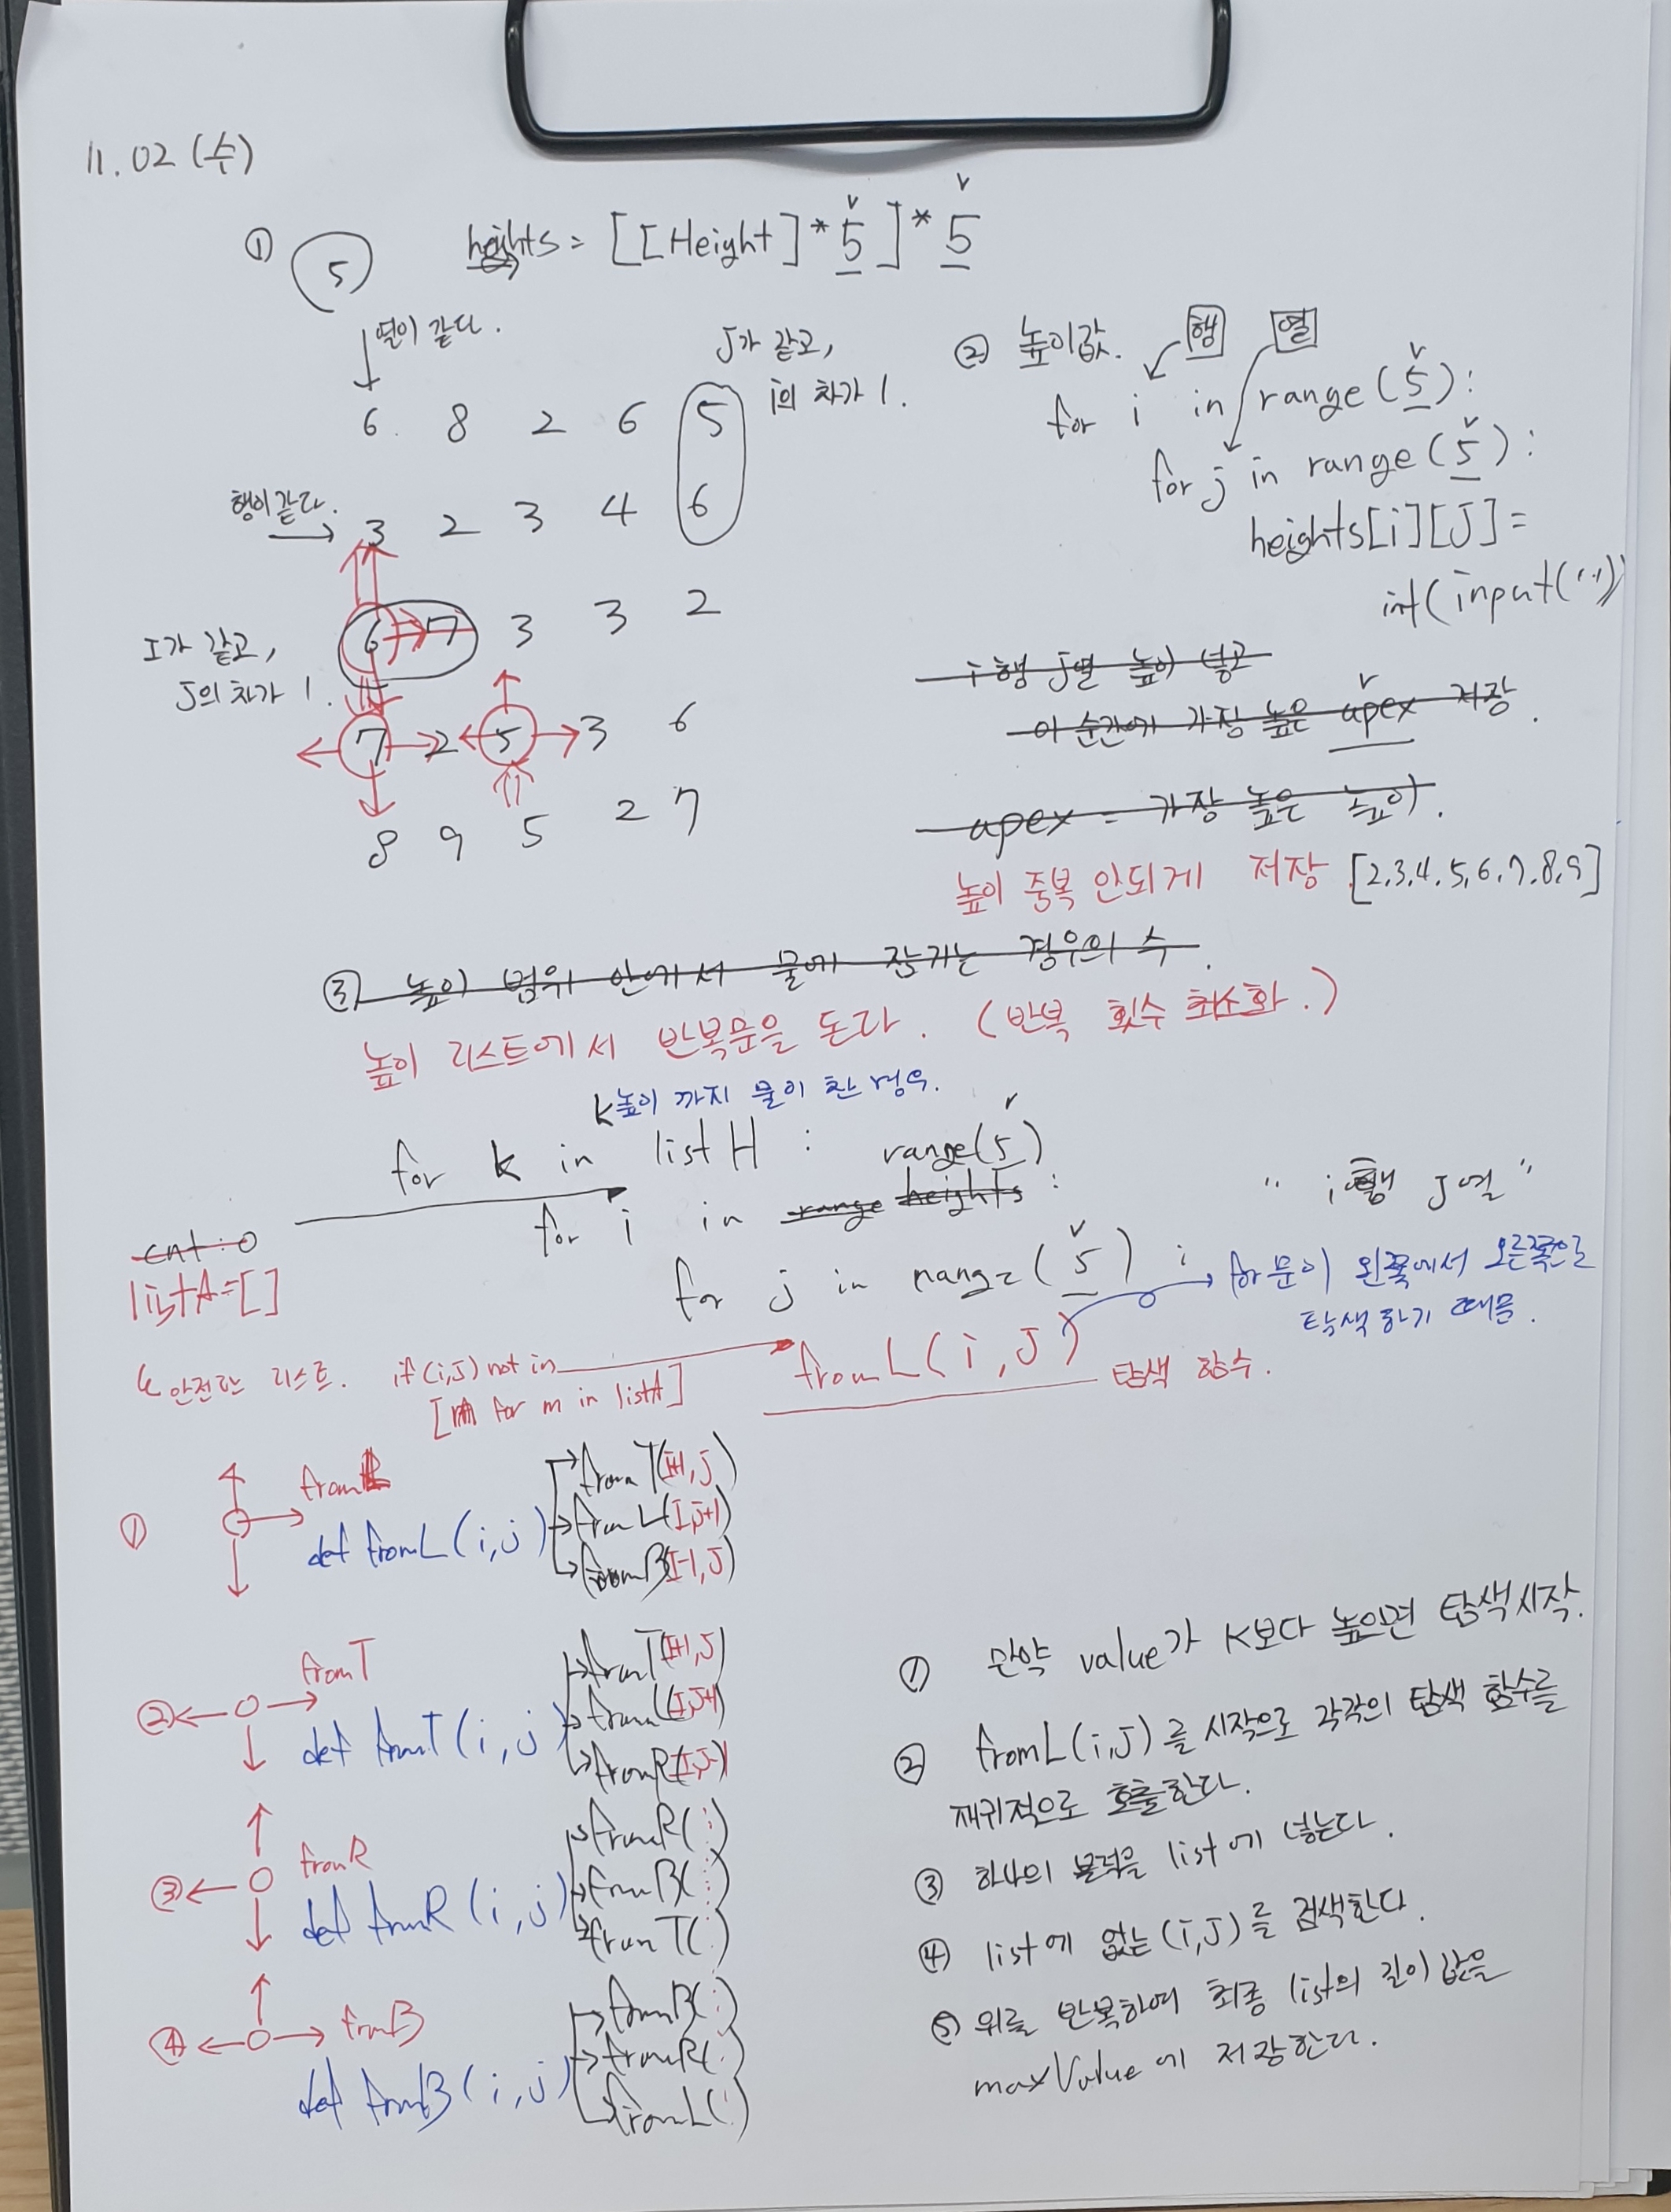 11.02 (수)
① 5 heights = [[Height]*5]*5
열이 같다.
J가 같고,
i의 차가 1.
6. 8 2 6 5
행이 같다.
3 2 3 4 6
I가 같고,
J의 차가 1.
6 7 3 3 2
7 2 5 3 6
8 9 5 2 7
② 높이값. 행 열
for i in range(5):
for j in range(5):
heights[i][J] =
int(input(''))
i행 J열 높이 넣고
이 순간에 가장 높은 apex 저장.
apex = 가장 높은 높이.
높이 중복 안되게 저장 [2,3,4,5,6,7,8,9]
③ 높이 범위 안에서 물에 잠기는 경우의 수.
높이 리스트에서 반복문을 돈다. (반복 횟수 최소화.)
k높이 까지 물이 찬 경우.
for k in listH :
range(5)
for i in range heights :
"i행 J열"
cnt = 0
listA=[]
for j in range(5) :
for문이 왼쪽에서 오른쪽으로
탐색하기 때문.
fromL(i,J)
탐색 함수.
안전한 리스트. if(i,J) not in
[m for m in listA]
① fromL
def fromL(i,j)
fromT(I+1,j)
fromL(I,j+1)
fromB(I-1,J)
② fromT
def fromT(i,j)
fromT(I+1,J)
fromL(I,J+1)
fromR(I,J-1)
③ fromR
def fromR(i,j)
fromR(:)
fromB(:)
fromT(:)
④ fromB
def fromB(i,j)
fromB(:)
fromR(:)
fromL(:)
① 만약 value가 K보다 높으면 탐색시작.
② fromL(i,J)를 시작으로 각각의 탐색 함수를
재귀적으로 호출한다.
③ 하나의 list에 넣는다.
④ list에 없는 (i,J)를 검색한다.
⑤ 위를 반복하여 최종 list의 길이 값을
maxValue에 저장한다.